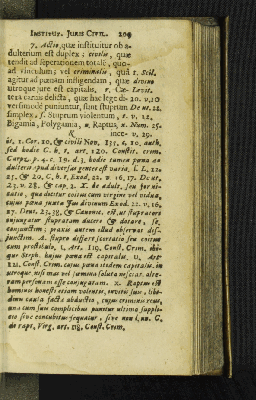 INSTITUT. JURIS CIVIL. 209
7. Actio, quæ instituitur ob a-
dulterium est duplex; civilis, quæ
tendit ad separationem totalẽ, quo-
ad vinculum; vel criminalis, quâ 1. Scil.
agitur ad pœnam infligendam, quæ divino
utroque jure est capitalis. v. Cæ- Levit.
tera carnis delicta, quæ hac lege di- 20. v. 10
versimodè puniuntur, sunt stuprum De ut. 22.
simplex, s. Stuprum violentum, v. 12.
Bigamia, Polygamia, u. Raptus, x. Num. 25.
ince- v. 29.
is, 1. Cor. 10, & civili Nov. 134, c. 10, auth,
sed hodiè C. h. t, art. 120. Constit. crim.
Carp. p. 4. c. 19. d. 3. hodie tamen pœna ao
dulterii ipsâ diversâs gentes est varia, l. L, 120
25, & 20, C, h. t, Exod, 22. v. 16, 17. De ut,
23, v. 28, & cap, 2. X. de adult, seu
natio, qua detitur coitus cum virgine vel vidua,
cujus pœna juxta Jus divinum Exod. 22. v, 16,
27. Deut, 23, 38, & Canonic. est, ut stuprator
conjungatur stupratam ducere & dotare, is,
conjunctim; praxis autem illud observat dis-
junctim. A. stupro differt scortatio seu coitus
cum prostibulo, v, Art, 119, Const. Crim, ibi-
que Steph. hujus pœna est capitalis, v, Art
121, Const. Crim. cujus pœna itidem capitalis, in
utroque, nisi mas vel fœmina soluta nesciat, alte-
ram personam esse conjugatam. x. Raptus est
hominis honesti etiam volentis, invitis suis, libi-
dinis causa facta abductio, cujus criminis reus,
una cum suis complicibus punitur ultimo suppli-
cio sive concubitus sequatur, sive non l, un, C,
de rapt, Virg, art. 118, Const. Crim,